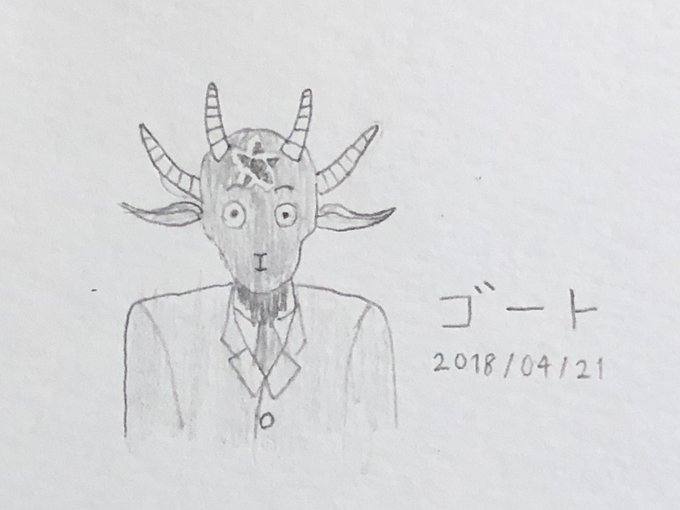 ゴート
2018/04/21